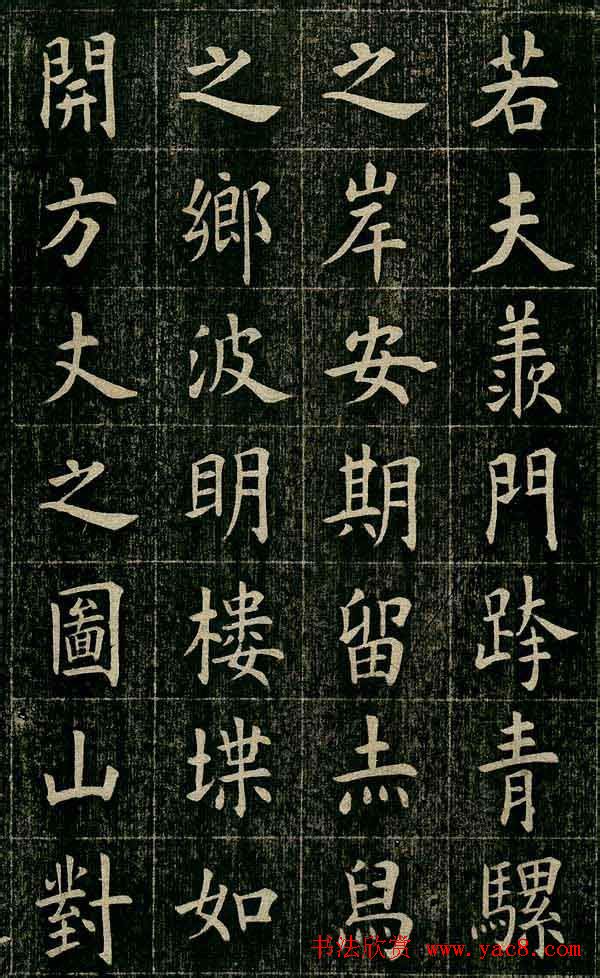 若夫羨門跨青騾
之岸安期留赤舄
之鄉波明樓堞如
開方丈之圖山對
书法欣赏 www.yac8.com